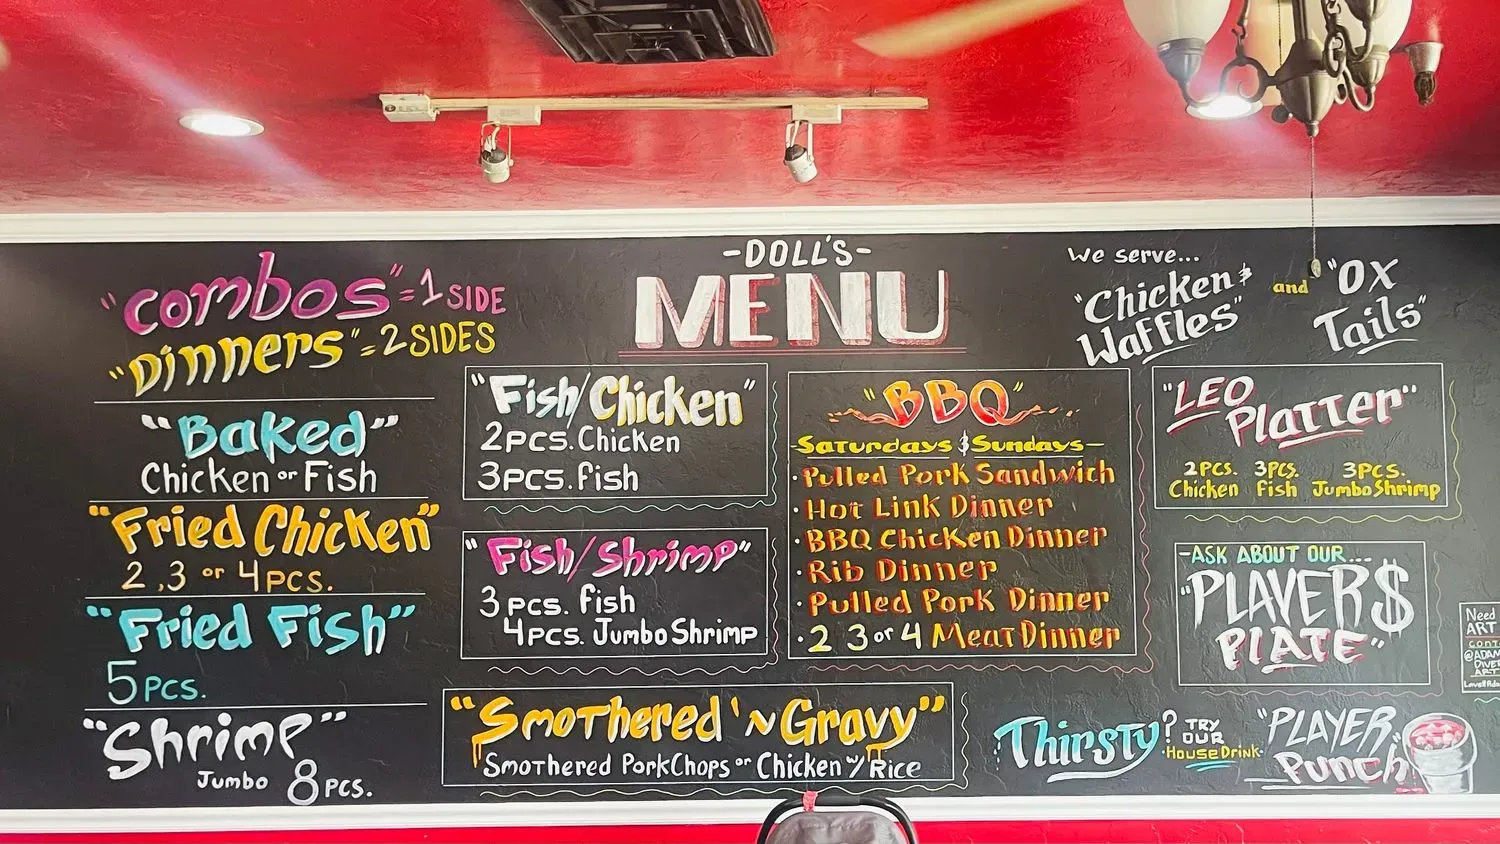 -DOLL'S-
MENU
"Combos" = 1 SIDE
"Dinners" = 2 SIDES
"Baked"
Chicken or Fish
"Fried Chicken"
2, 3 or 4 PCS.
"Fried Fish"
5 PCS.
"Shrimp"
Jumbo 8 PCS.
"Fish/Chicken"
2 PCS. Chicken
3 PCS. fish
"Fish/Shrimp"
3 PCS. fish
4 PCS. Jumbo Shrimp
"Smothered 'N Gravy"
Smothered Pork Chops or Chicken w/ Rice
"BBQ"
-Saturdays & Sundays-
· Pulled Pork Sandwich
· Hot Link Dinner
· BBQ Chicken Dinner
· Rib Dinner
· Pulled Pork Dinner
· 2 3 or 4 Meat Dinner
We serve...
"Chicken &
Waffles"
and
"OX
Tails"
"LEO
Platter"
2 PCS. Chicken
3 PCS. fish
3 PCS. Jumbo Shrimp
-ASK ABOUT OUR...
"PLAYER$
PLATE"
Thirsty?
TRY
OUR
House Drink-
"PLAYER
Punch"
Need
ART